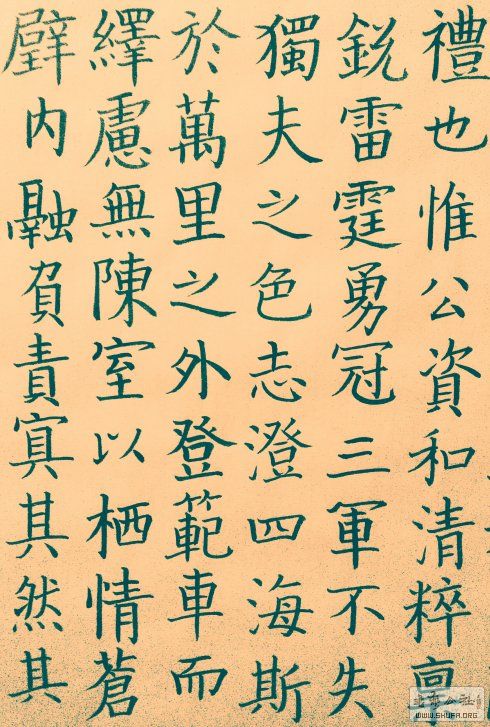 禮也惟公資和清粹
銳雷霆勇冠三軍不失
獨夫之色志澄四海斯
於萬里之外登範車而
繹慮無陳室以栖情蒼
内融負責寘其然其
WWW.SHUFA.ORG